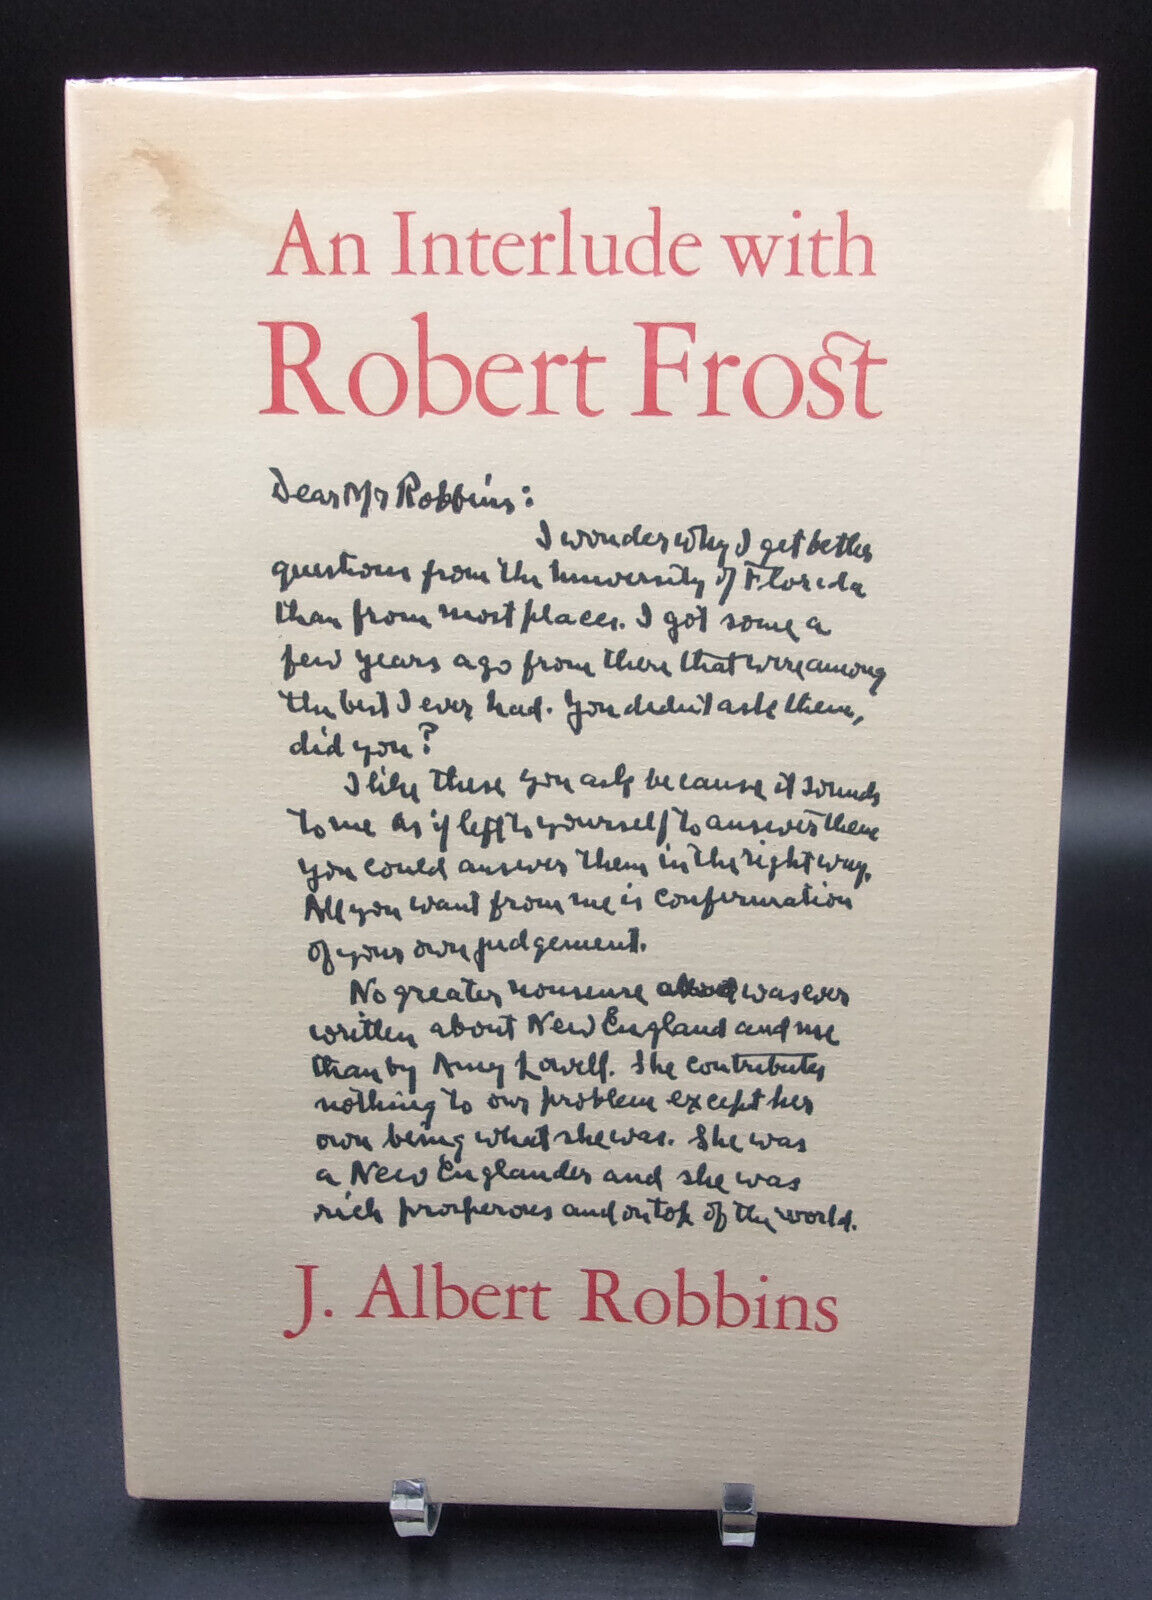 An Interlude with
Robert Frost
Dear Mr Robbins:
I wonder why I get better
questions from the University of Florida
than from most places. I got some a
few years ago from there that were among
the best I ever had. You didn't ask them,
did you?
I like these you ask because it sounds
to me as if left to yourself to answer them
you could answer them in the right way.
All you want from me is confirmation
of your own judgement.
No greater nonsense was ever
written about New England and me
than by Amy Lowell. She contributes
nothing to our problem except her
own being what she was. She was
a New Englander and she was
rich prosperous and on top of the world.
J. Albert Robbins